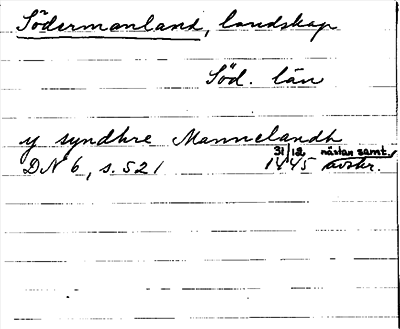 Södermanland, landskap
Söd. län
y syndhre Mannelandh
DN 6, s. 521 31/12 1445 nästan samt. avskr.